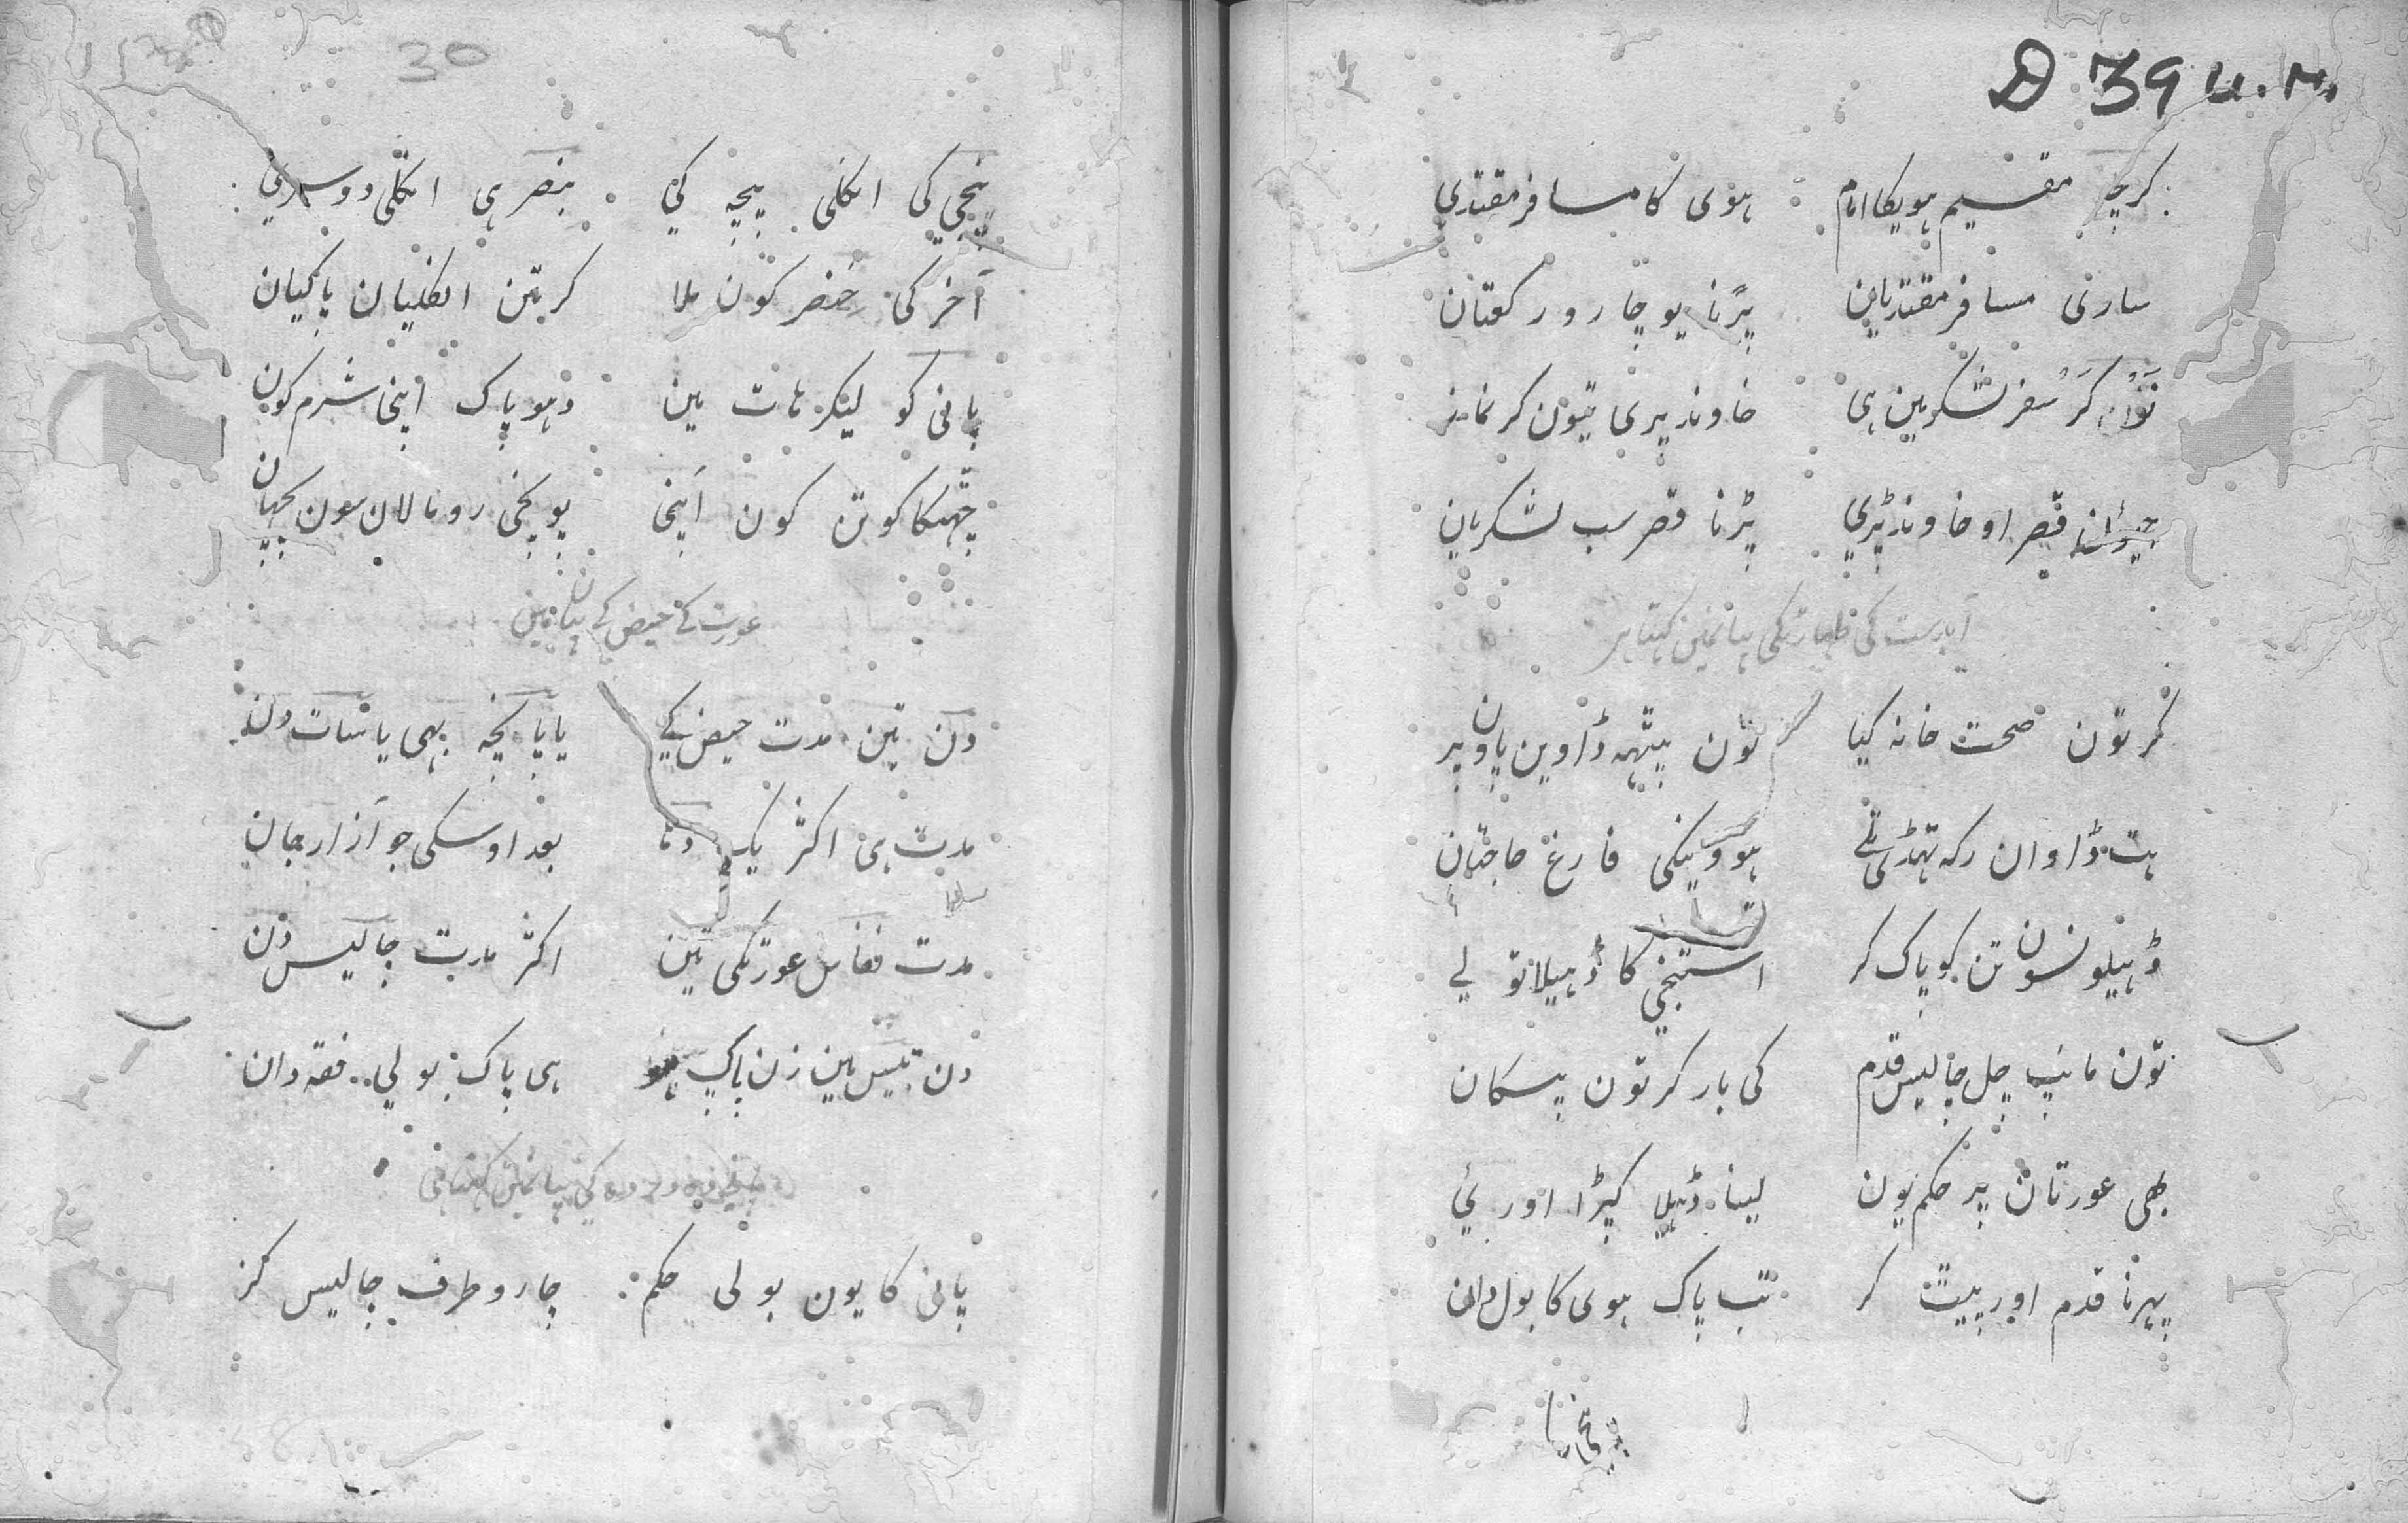 D 39 U.M.
گرچہ مقیم ہویکا امام ہوی کا مسافر مقتدی
سارئی مسافر مقتدیان پڑنا یو چارو رکعتان
کر سفر لشکر مین ہی خاوند پری تیون کر نماز
قصر او خاوند پڑی پڑنا قصر سب لشکریان
آبدست کی طہارتکی بیانمین کہتا ہی
کر تون صحت خانہ کیا تون بیٹہہ ڈاوین پاون پر
ہت ڈاوان رکہ تہڈی تلے ہووینکی فارغ حاجتان
ڈہیلو نسون تن کو پاک کر استنجی کا ڈہیلا تو لے
تون چل چالیس قدم کی بار کر تون
بھی عورتان پر حکم یون لینا ڈہیلا کپڑا اور
پہرنا قدم اور بیٹ کر تب پاک ہوی کا بول دان
30
پنجی کی انکلی بیچہ کی بنصر ہی انکلی دوسری
آخر کی خنصر کون ملا کر تن انکلیان پاکیان
پانی کو لیکر ہات مین دہو پاک اپنی شرم کون
کون اپنی رومالان سون
عورت کے حیض کے بیان مین
دن تین مدت حیض کے یا پانچہ بہی یا سات دن
مدت ہی اکثر یک دہا بعد اوسکی جو آزار جان
مدت نفاس عورتکی تین اکثر مدت چالیس دن
دن تیس مین زن پاک ہو ہی پاک بولی فقہ دان
پانی کا یون بولی حکم چارو طرف چالیس گز